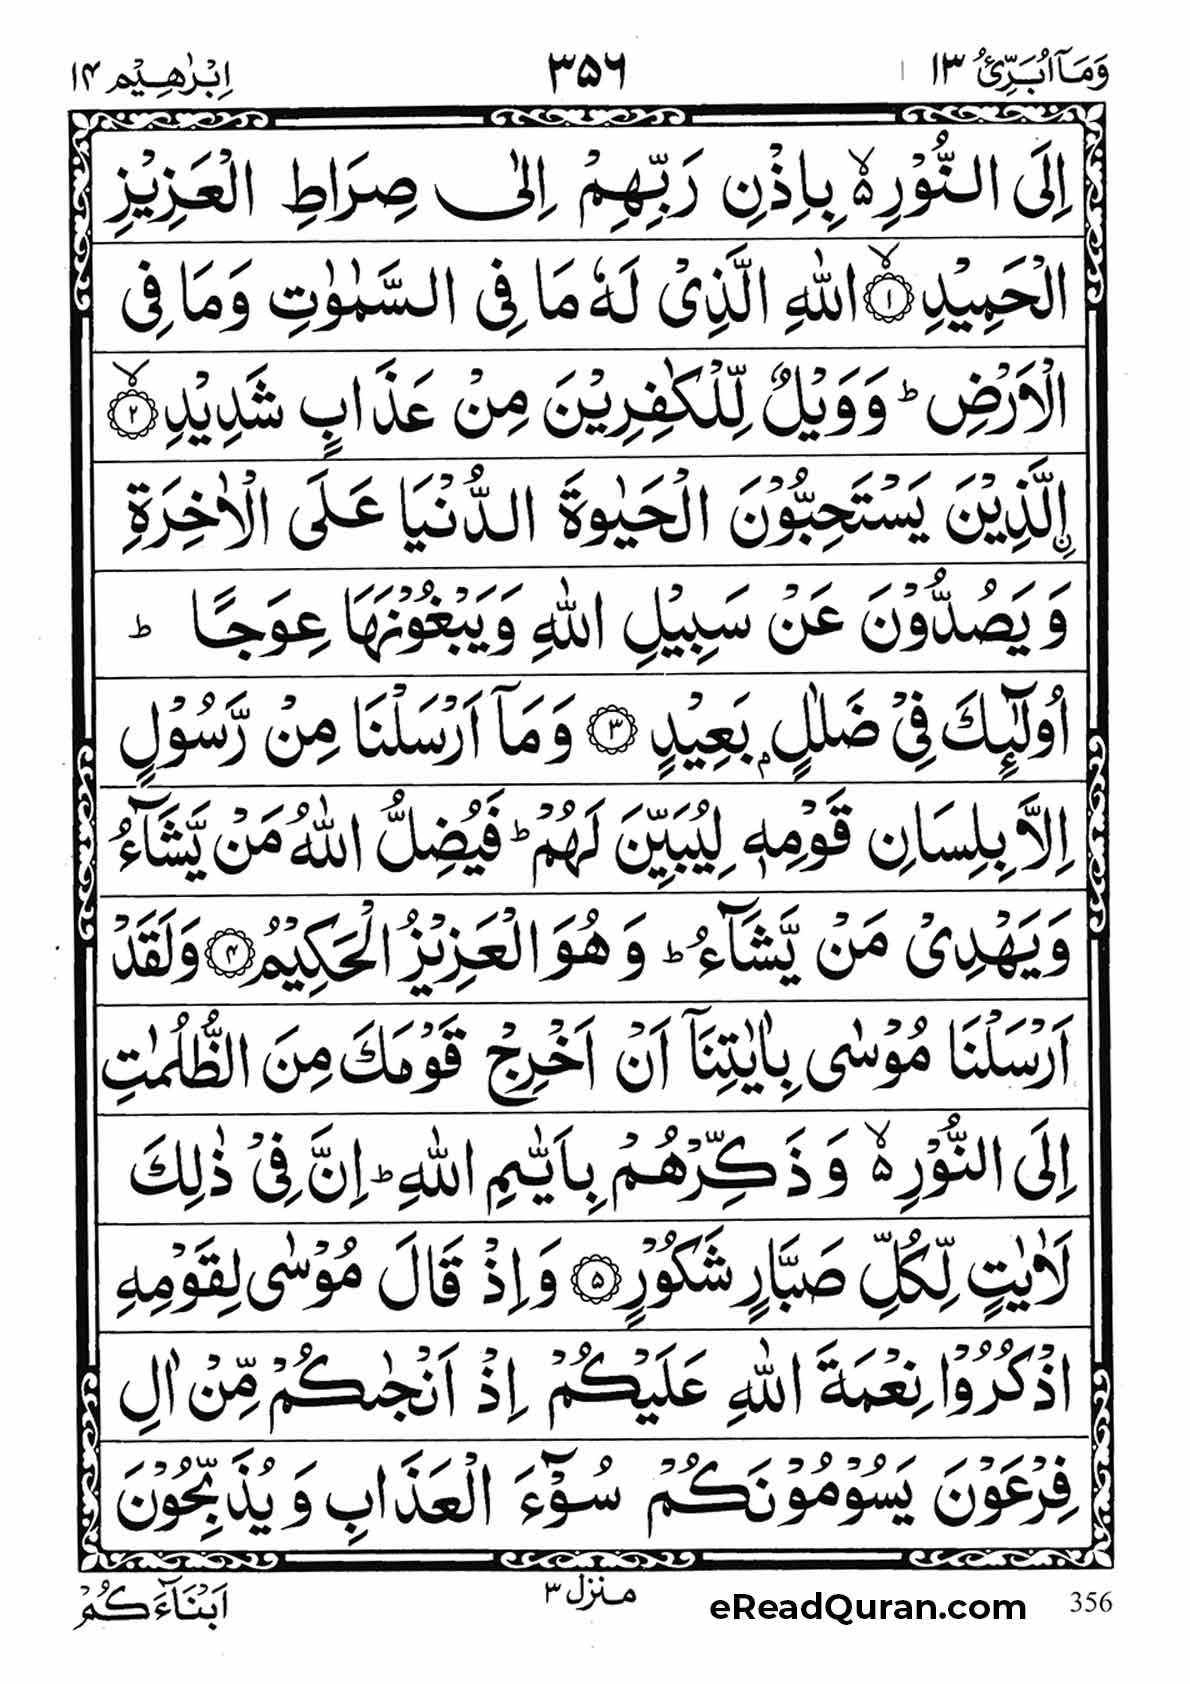 وَمَآ اُبَرِّئُ ١٣
٣٥٦
اِبْرٰهِيْم ١٤
اِلَى النُّوْرِ ۙ۬ بِاِذْنِ رَبِّهِمْ اِلٰى صِرَاطِ الْعَزِيْزِ
الْحَمِيْدِ ۙ﴿١﴾ اللّٰهِ الَّذِيْ لَهٗ مَا فِي السَّمٰوٰتِ وَمَا فِي
الْاَرْضِ ؕ وَوَيْلٌ لِّلْكٰفِرِيْنَ مِنْ عَذَابٍ شَدِيْدِ ۙ﴿٢﴾
ۨالَّذِيْنَ يَسْتَحِبُّوْنَ الْحَيٰوةَ الدُّنْيَا عَلَى الْاٰخِرَةِ
وَيَصُدُّوْنَ عَنْ سَبِيْلِ اللّٰهِ وَيَبْغُوْنَهَا عِوَجًا ؕ
اُولٰٓئِكَ فِيْ ضَلٰلٍۭ بَعِيْدٍ ﴿٣﴾ وَمَآ اَرْسَلْنَا مِنْ رَّسُوْلٍ
اِلَّا بِلِسَانِ قَوْمِهٖ لِيُبَيِّنَ لَهُمْ ؕ فَيُضِلُّ اللّٰهُ مَنْ يَّشَآءُ
وَيَهْدِيْ مَنْ يَّشَآءُ ؕ وَهُوَ الْعَزِيْزُ الْحَكِيْمُ ﴿٤﴾ وَلَقَدْ
اَرْسَلْنَا مُوْسٰى بِاٰيٰتِنَآ اَنْ اَخْرِجْ قَوْمَكَ مِنَ الظُّلُمٰتِ
اِلَى النُّوْرِ ۙ۬ وَذَكِّرْهُمْ بِاَيّٰىمِ اللّٰهِ ؕ اِنَّ فِيْ ذٰلِكَ
لَاٰيٰتٍ لِّكُلِّ صَبَّارٍ شَكُوْرٍ ﴿٥﴾ وَاِذْ قَالَ مُوْسٰى لِقَوْمِهِ
اذْكُرُوْا نِعْمَةَ اللّٰهِ عَلَيْكُمْ اِذْ اَنْجٰىكُمْ مِّنْ اٰلِ
فِرْعَوْنَ يَسُوْمُوْنَكُمْ سُوْٓءَ الْعَذَابِ وَيُذَبِّحُوْنَ
اَبْنَآءَكُمْ
منزل ٣
eReadQuran.com
356